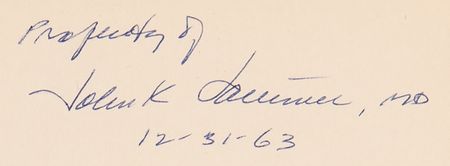 Property of
John K Lattimer, MD
12-31-63